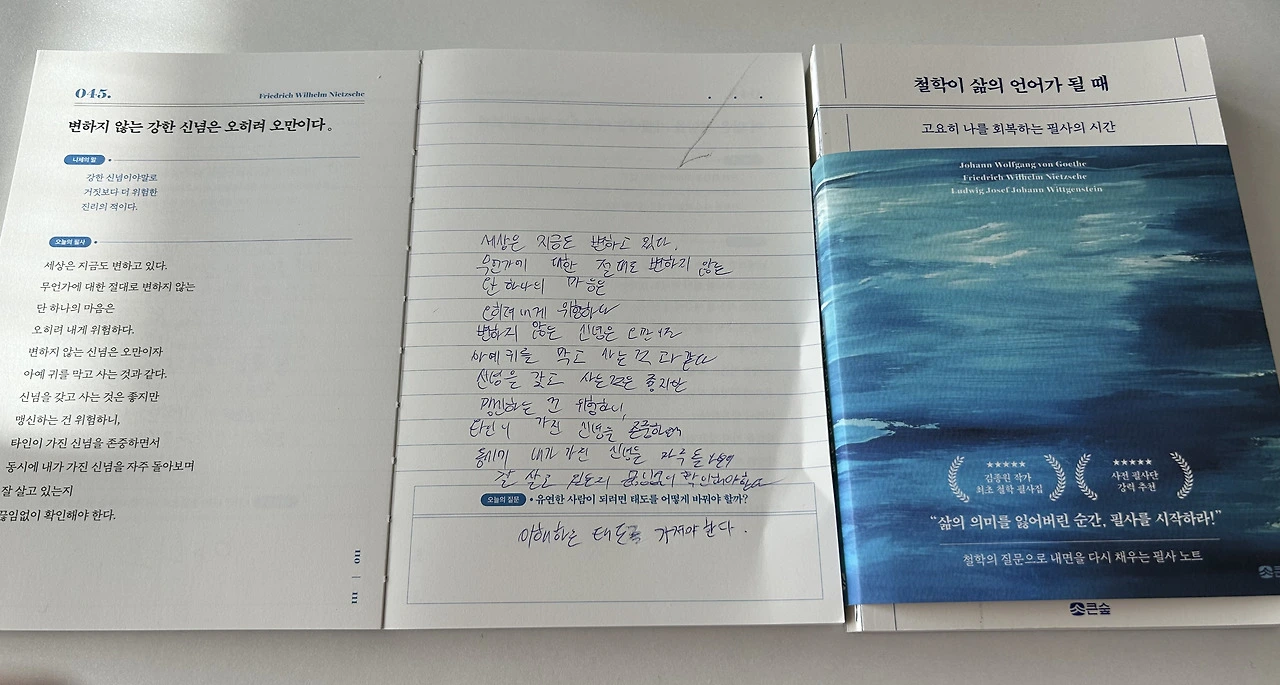 045.
Friedrich Wilhelm Nietzsche
변하지 않는 강한 신념은 오히려 오만이다。
니체의 말
강한 신념이야말로
거짓보다 더 위험한
진리의 적이다.
오늘의 필사
세상은 지금도 변하고 있다.
무언가에 대한 절대로 변하지 않는
단 하나의 마음은
오히려 내게 위험하다.
변하지 않는 신념은 오만이자
아예 귀를 막고 사는 것과 같다.
신념을 갖고 사는 것은 좋지만
맹신하는 건 위험하니,
타인이 가진 신념을 존중하면서
동시에 내가 가진 신념을 자주 돌아보며
잘 살고 있는지
끊임없이 확인해야 한다.
110 | 111
세상은 지금도 변하고 있다.
무언가에 대한 절대로 변하지 않는
단 하나의 마음은
오히려 내게 위험하다
변하지 않는 신념은 오만이자
아예 귀를 막고 사는 것과 같다
신념을 갖고 사는 것은 좋지만
맹신하는 건 위험하니,
타인이 가진 신념을 존중하며
동시에 내가 가진 신념을 자주 돌아보며
잘 살고 있는지 끊임없이 확인해야한다
오늘의 질문
유연한 사람이 되려면 태도를 어떻게 바꿔야 할까?
이해하는 태도 가져야 한다.
철학이 삶의 언어가 될 때
고요히 나를 회복하는 필사의 시간
Johann Wolfgang von Goethe
Friedrich Wilhelm Nietzsche
Ludwig Josef Johann Wittgenstein
★★★★★
김종원 작가
최초 철학 필사집
★★★★★
사전 필사단
강력 추천
“삶의 의미를 잃어버린 순간, 필사를 시작하라!”
철학의 질문으로 내면을 다시 채우는 필사 노트
큰숲